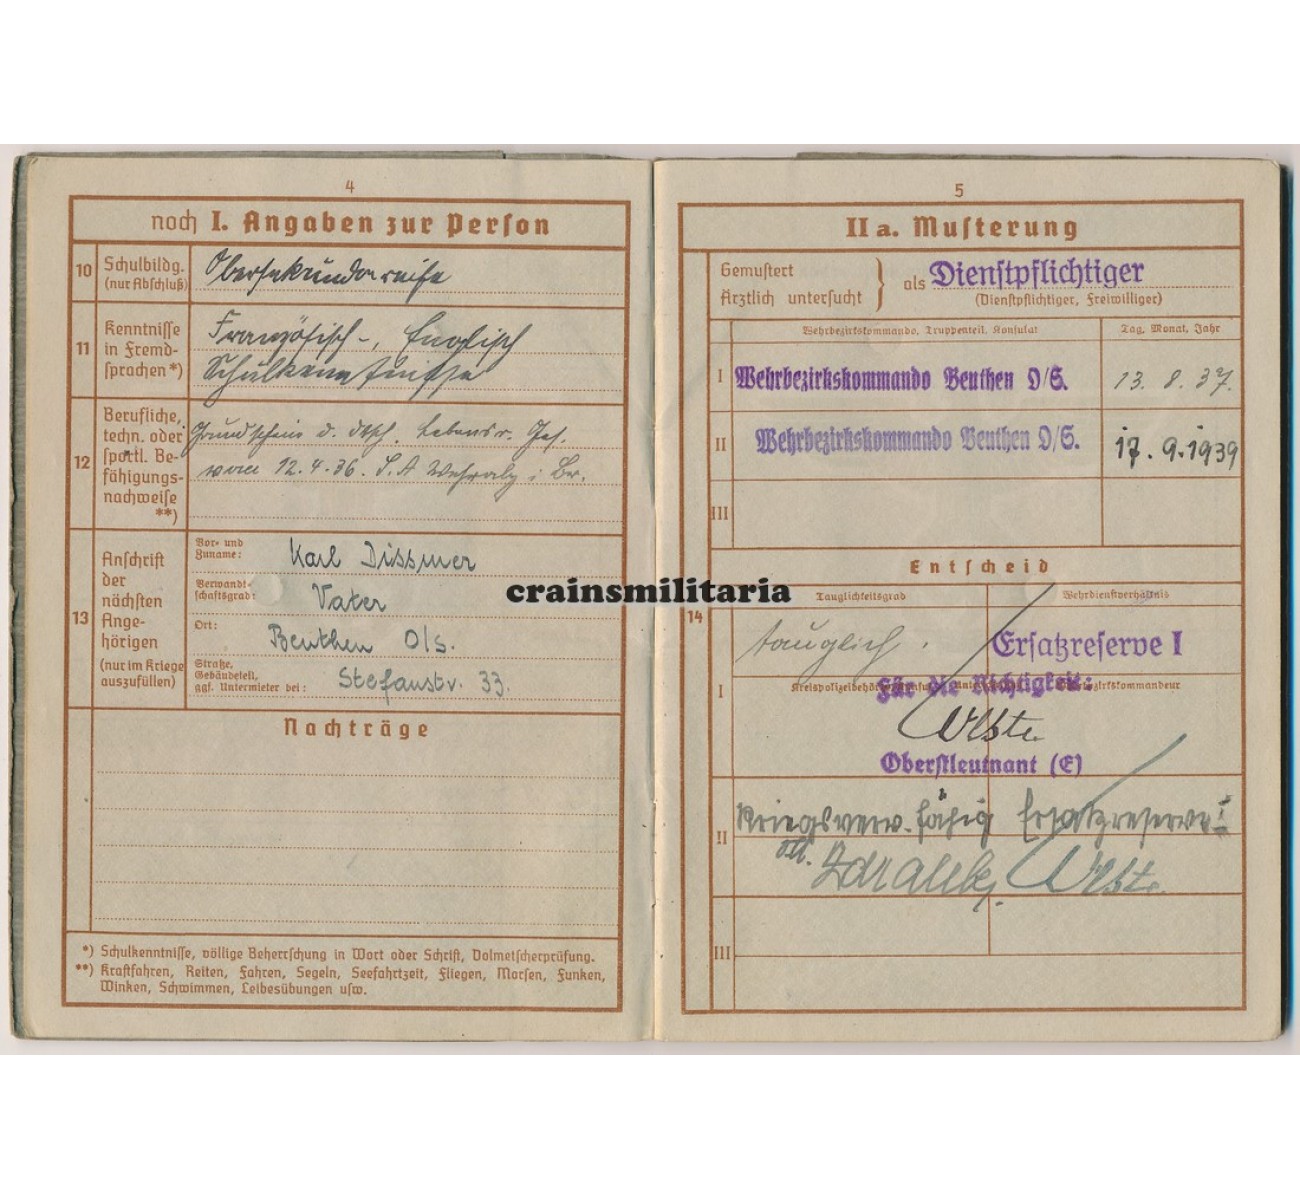 4
noch I. Angaben zur Person
10 Schulbildg. (nur Abschluß)
Obersekundareife
11 Kenntnisse in Fremdsprachen *)
Französisch-, Englisch
Schulkenntnisse
12 Berufliche, techn. oder sportl. Befähigungsnachweise **)
Grundschein d. dtsch. Lebensr. Ges.
vom 12.4.36. S.A
13 Anschrift der nächsten Angehörigen (nur im Kriege auszufüllen)
Vor- und Zuname: Karl Dissmer
Verwandtschaftsgrad: Vater
Ort: Beuthen O/s.
Straße, Gebäudeteil, ggf. Untermieter bei: Stefanstr. 33.
Nachträge
*) Schulkenntnisse, völlige Beherrschung in Wort oder Schrift, Dolmetscherprüfung.
**) Kraftfahren, Reiten, Fahren, Segeln, Seefahrtzeit, Fliegen, Morsen, Funken,
Winken, Schwimmen, Leibesübungen usw.
crainsmilitaria
5
II a. Musterung
Gemustert
Ärztlich untersucht
} als Dienstpflichtiger
(Dienstpflichtiger, Freiwilliger)
Wehrbezirkskommando, Truppenteil, Konsulat Tag, Monat, Jahr
I Wehrbezirkskommando Beuthen O/S. 13. 8. 37.
II Wehrbezirkskommando Beuthen O/S. 17.9.1939
III
Entscheid
14
Tauglichkeitsgrad Wehrdienstverhältnis
tauglich. Ersatzreserve I
I
Für die Richtigkeit:
Oberstleutnant (E)
II Kriegsverw. fähig Ersatzreserve I
III